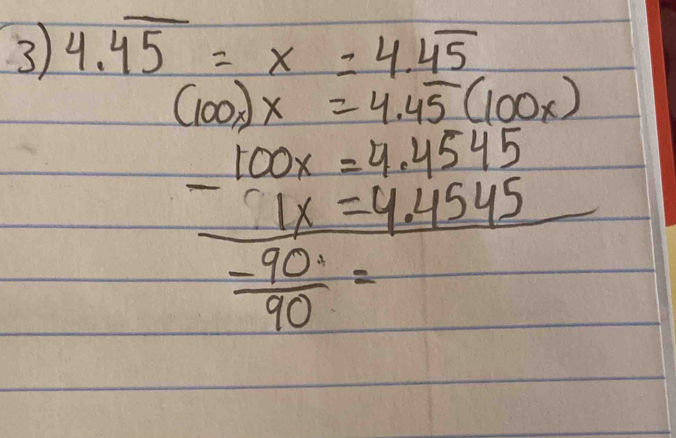 3) 4.4̅5̅ = x = 4.4̅5̅
(100x) x = 4.4̅5̅ (100x)
- 100x = 4.4545
1x = 4.4545
-90
90 =